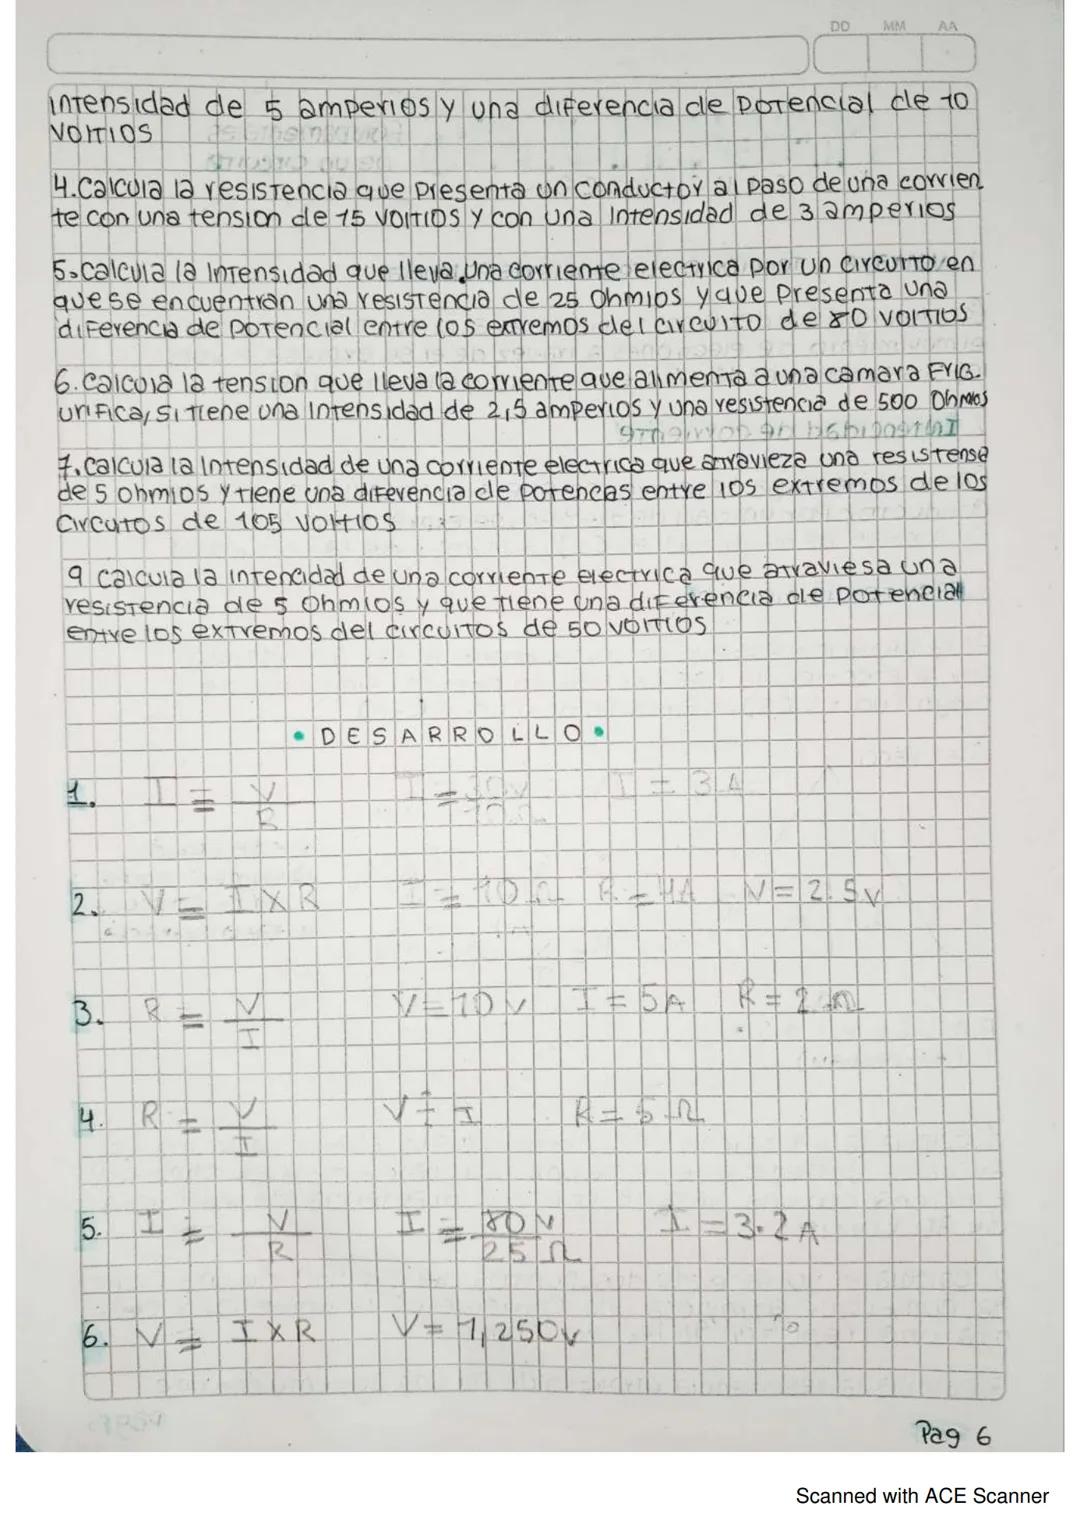 DD MM AA
intensidad de 5 amperios y una diferencia de potencial de 10
voltios
4. Calcula la resistencia que presenta un conductor al paso de una corrien
te con una tension de 15 voltios y con una intensidad de 3 amperios
5. calcula la intensidad que lleva una corriente electrica por un circuito en
que se encuentran una resistencia de 25 Ohmios y que presenta una
diferencia de potencial entre los extremos del circuito de 80 voltios
6. calcula la tension que lleva la corriente que alimenta a una camara Frig.
urifica, si tiene una intensidad de 2,5 amperios y una resistencia de 500 Ohmios
7. calcula la intensidad de una corriente electrica que atravieza una resistensa
de 5 ohmios y tiene una diferencia de potencas entre los extremos de los
circutos de 105 voltios
9 calcula la intencidad de una corriente electrica que atraviesa una
resistencia de 5 Ohmios y que tiene una diferencia de potencial
entre los extremos del circuitos de 50 voltios
• DESARROLLO •
1. I = V/R I = 30v/10Ω I = 3A
2. V = I X R I = 10Ω R = 4A V = 2.5v
3. R = V/I V = 10v I = 5A R = 2Ω
4. R = V/I V ÷ I R = 5Ω
5. I = V/R I = 80v/25Ω I = 3.2A
6. V = I X R V = 1,250v
Pag 6
Scanned with ACE Scanner